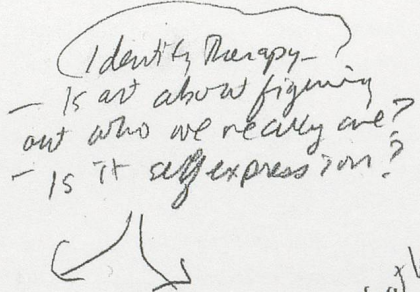 Identity Therapy - ?
- Is art about figuring
out who we really are?
- Is it self expression?